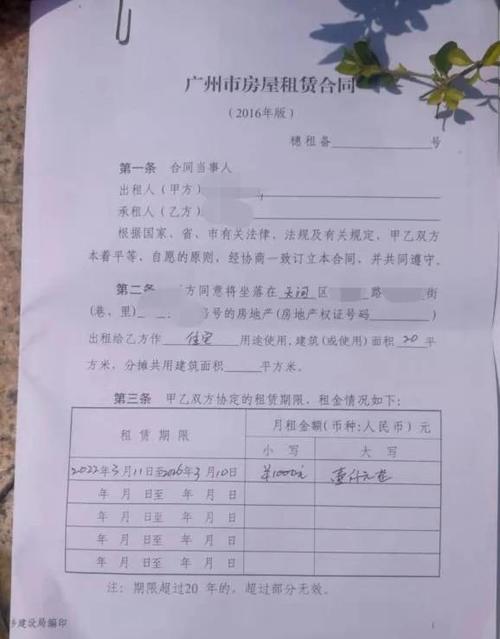 广州市房屋租赁合同
(2016年版)
穗租备 号
第一条 合同当事人
出租人(甲方)
承租人(乙方)
根据国家、省、市有关法律、法规及有关规定,甲乙双方
本着平等、自愿的原则,经协商一致订立本合同,并共同遵守。
第二条 方同意将坐落在 天河 区 路 街
(巷、里) 号的房地产(房地产权证号码 )
出租给乙方作 住宅 用途使用,建筑(或使用)面积 20 平
方米,分摊共用建筑面积 平方米。
第三条 甲乙双方协定的租赁期限、租金情况如下:
租赁期限
月租金额(币种:人民币)元
小写 大写
2022年3月11日至2026年3月10日 ¥1000元 壹仟元整
年 月 日至 年 月 日
年 月 日至 年 月 日
年 月 日至 年 月 日
年 月 日至 年 月 日
注:期限超过20年的,超过部分无效。
建设局编印
1